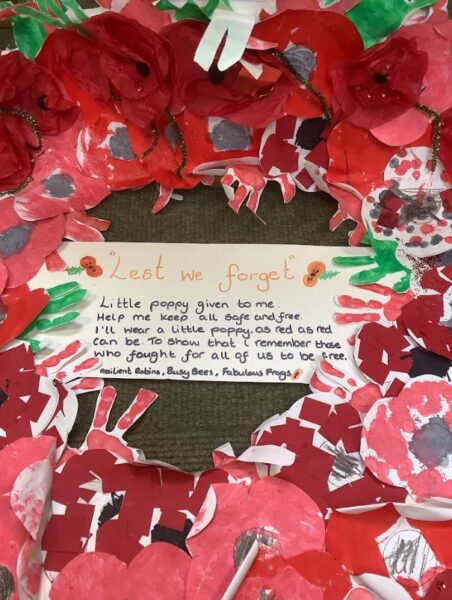 "Lest we forget"
Little poppy given to me.
Help me keep all safe and free.
I'll wear a little poppy, as red as red
can be. To show that I remember those
who fought for all of us to be free.
Resilient Robins, Busy Bees, Fabulous Frogs